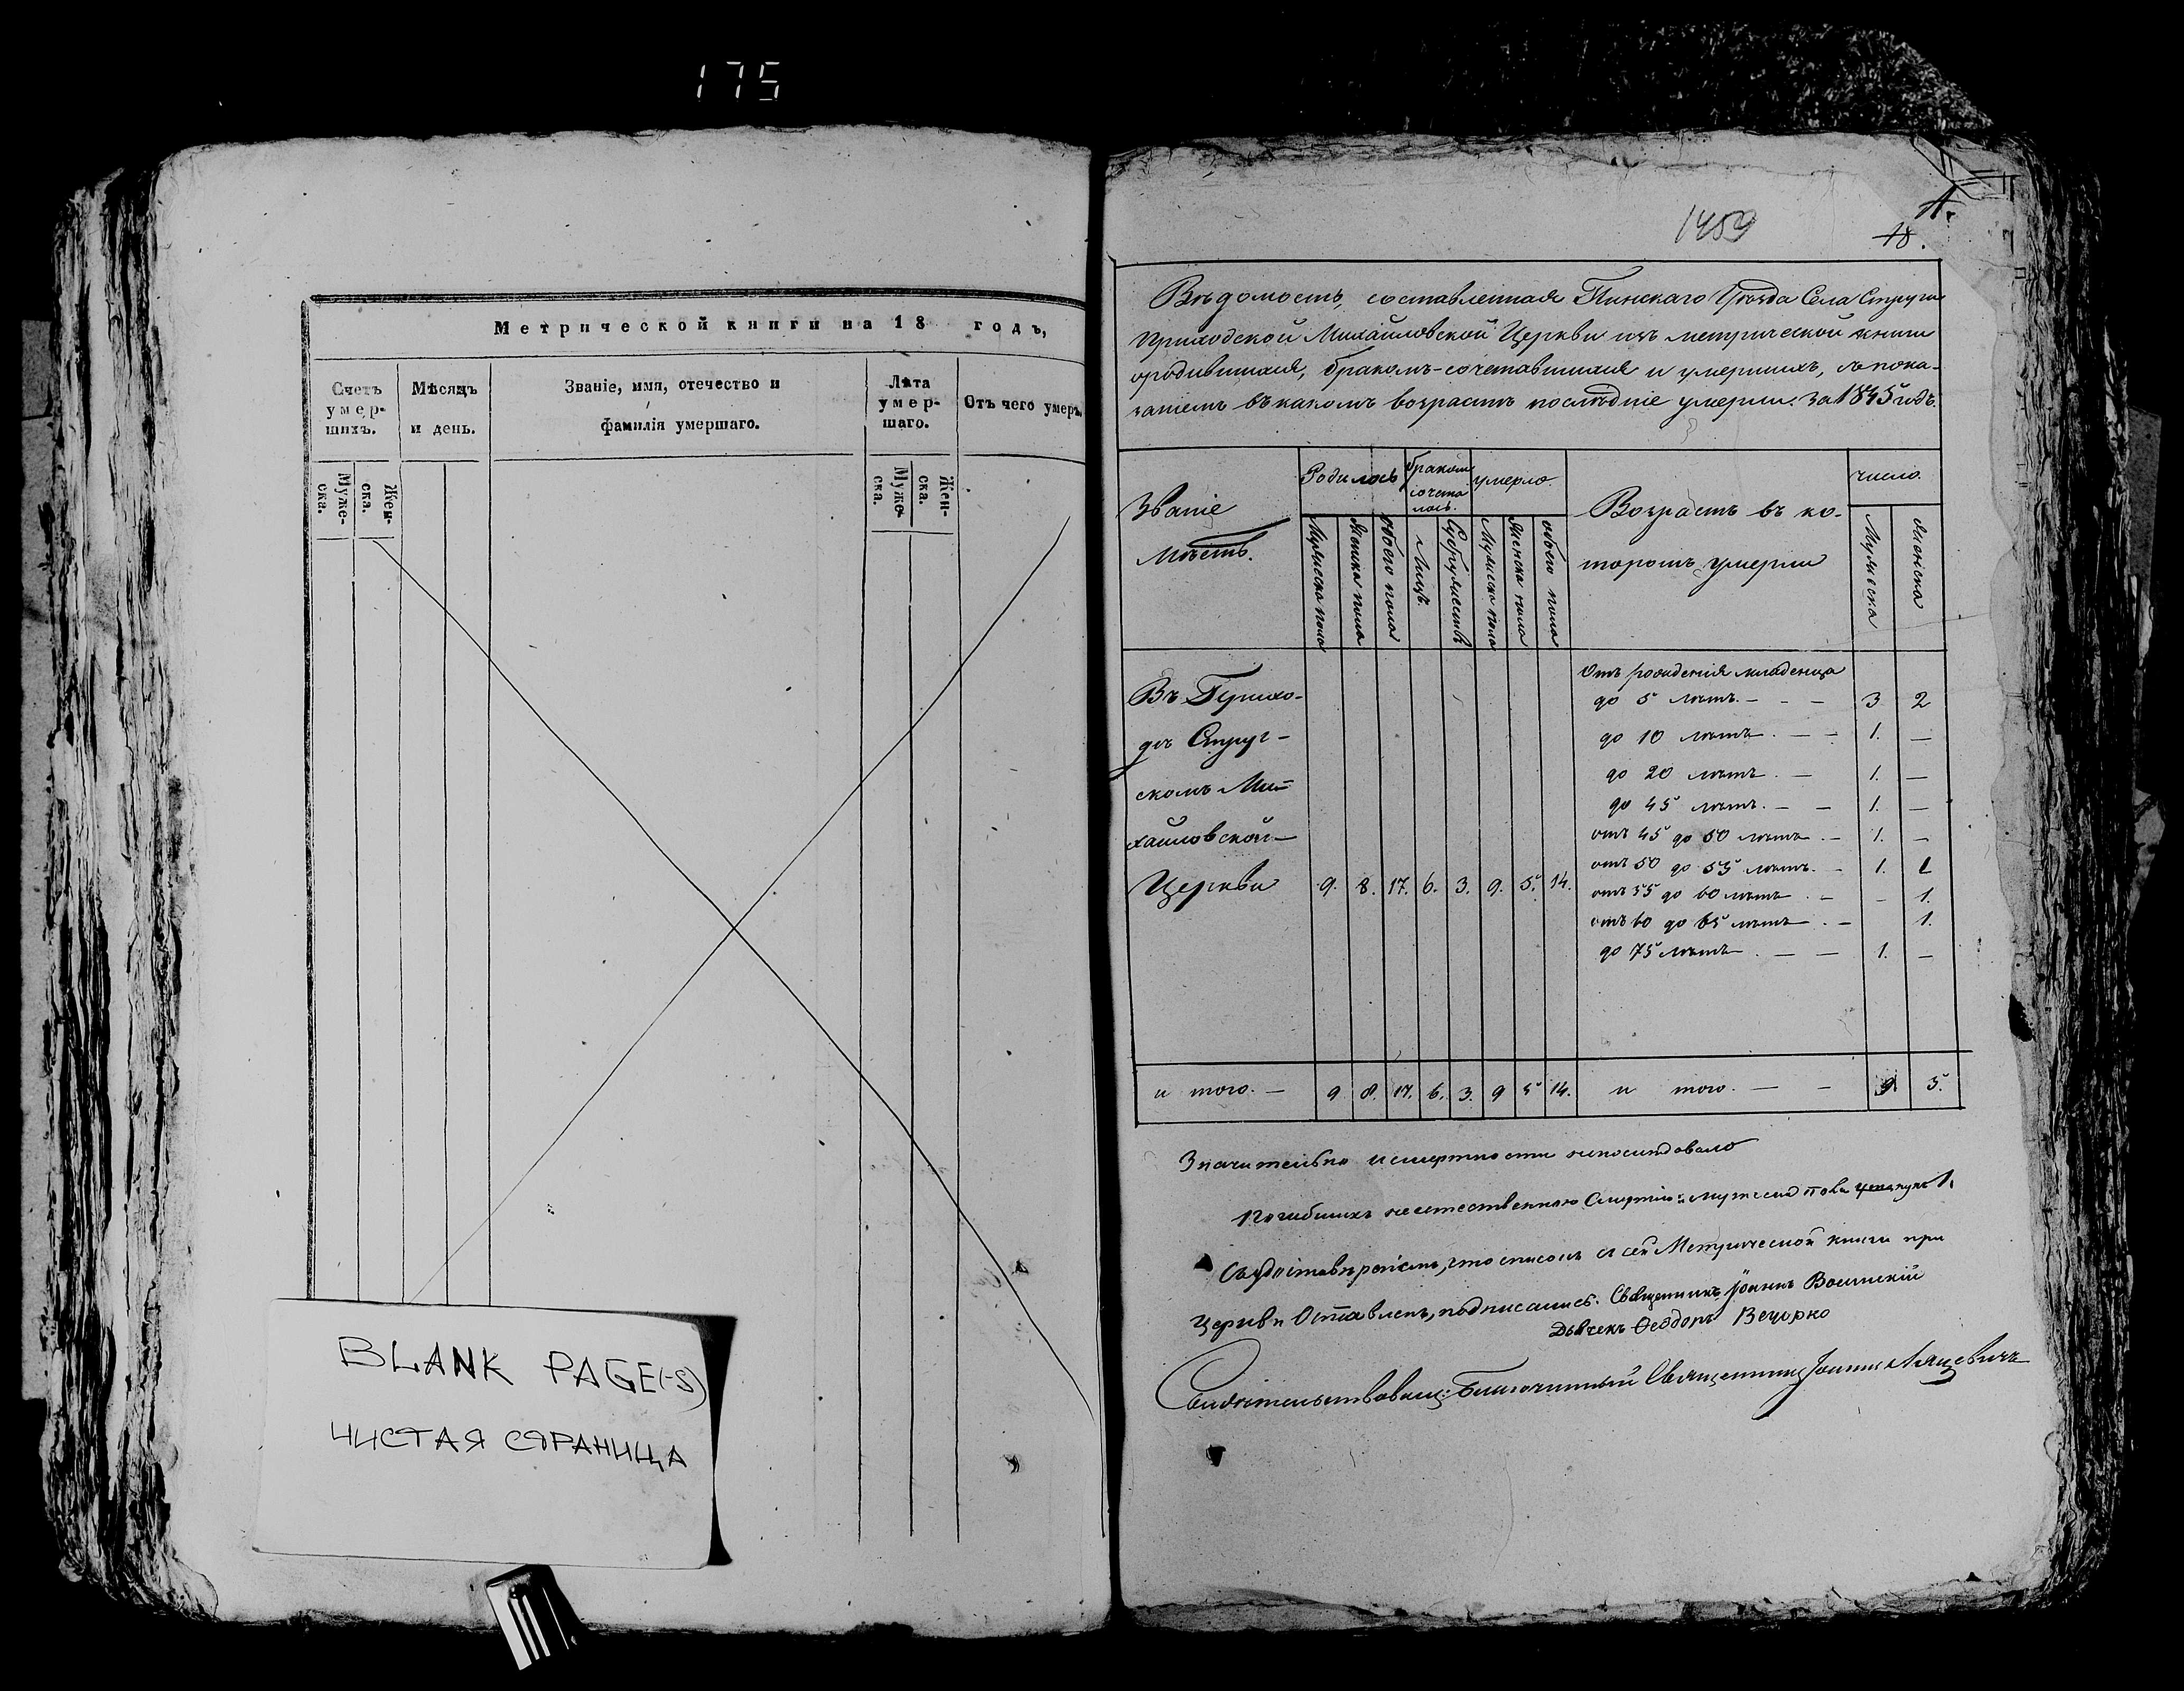 175
Метрической книги на 18 годъ,
Счетъ умер-шихъ.
Мѣсяцъ и день.
Званіе, имя, отечество и фамилія умершаго.
Лѣта умер-шаго.
Отъ чего умеръ
Муже-ска.
Жен-ска.
Муже-ска.
Жен-ска.
BLANK PAGE(-S)
ЧИСТАЯ СТРАНИЦА
1459
18.
Вѣдомость, составленная Пинскаго Уѣзда Села Струги
Приходской Михайловской Церкви изъ метрической книги
ородившихся, бракомъ-сочетавшихся и умершихъ, съ пока-
заніемъ въ какомъ возрастѣ послѣдніе умерли. За 1845 годъ.
Званіе мѣстъ.
Родилось
бракомъ сочета лось.
умерло.
Возрастъ въ ко-
торомъ умерли
число.
Мужеска пола
Женска пола
обоего пола
Лицъ
Супружествъ
Мужеска пола
Женска пола
обоего пола
Мужеска
Женска
Отъ рожденія младенца
до 5 лѣтъ. - - - 3 2
до 10 лѣтъ. - - 1. -
до 20 лѣтъ. - 1. -
до 45 лѣтъ. - - 1. -
отъ 45 до 50 лѣтъ. - 1. -
отъ 50 до 55 лѣтъ. - 1. 1
отъ 55 до 60 лѣтъ. - - 1.
отъ 60 до 65 лѣтъ. - 1.
до 75 лѣтъ. - - 1. -
Въ Прихо-
дѣ Струг-
скомъ Ми-
хайловской
Церкви 9. 8. 17. 6. 3. 9. 5. 14.
и того. - 9 8. 17. 6. 3. 9 5 14. и того. - - 9. 5.
Значительно исмертности непослѣдовало
Погибшихъ неестественною Смертію: мужеска пола 1.
что списокъ сей Метрической книги при
Церкви Оставленъ, подписались. Священникъ Іоаннъ
Дьячекъ Ѳеодоръ Вечорко
Свидѣтельствовалъ: Благочинный Священникъ Іоаннъ Ляцевичъ